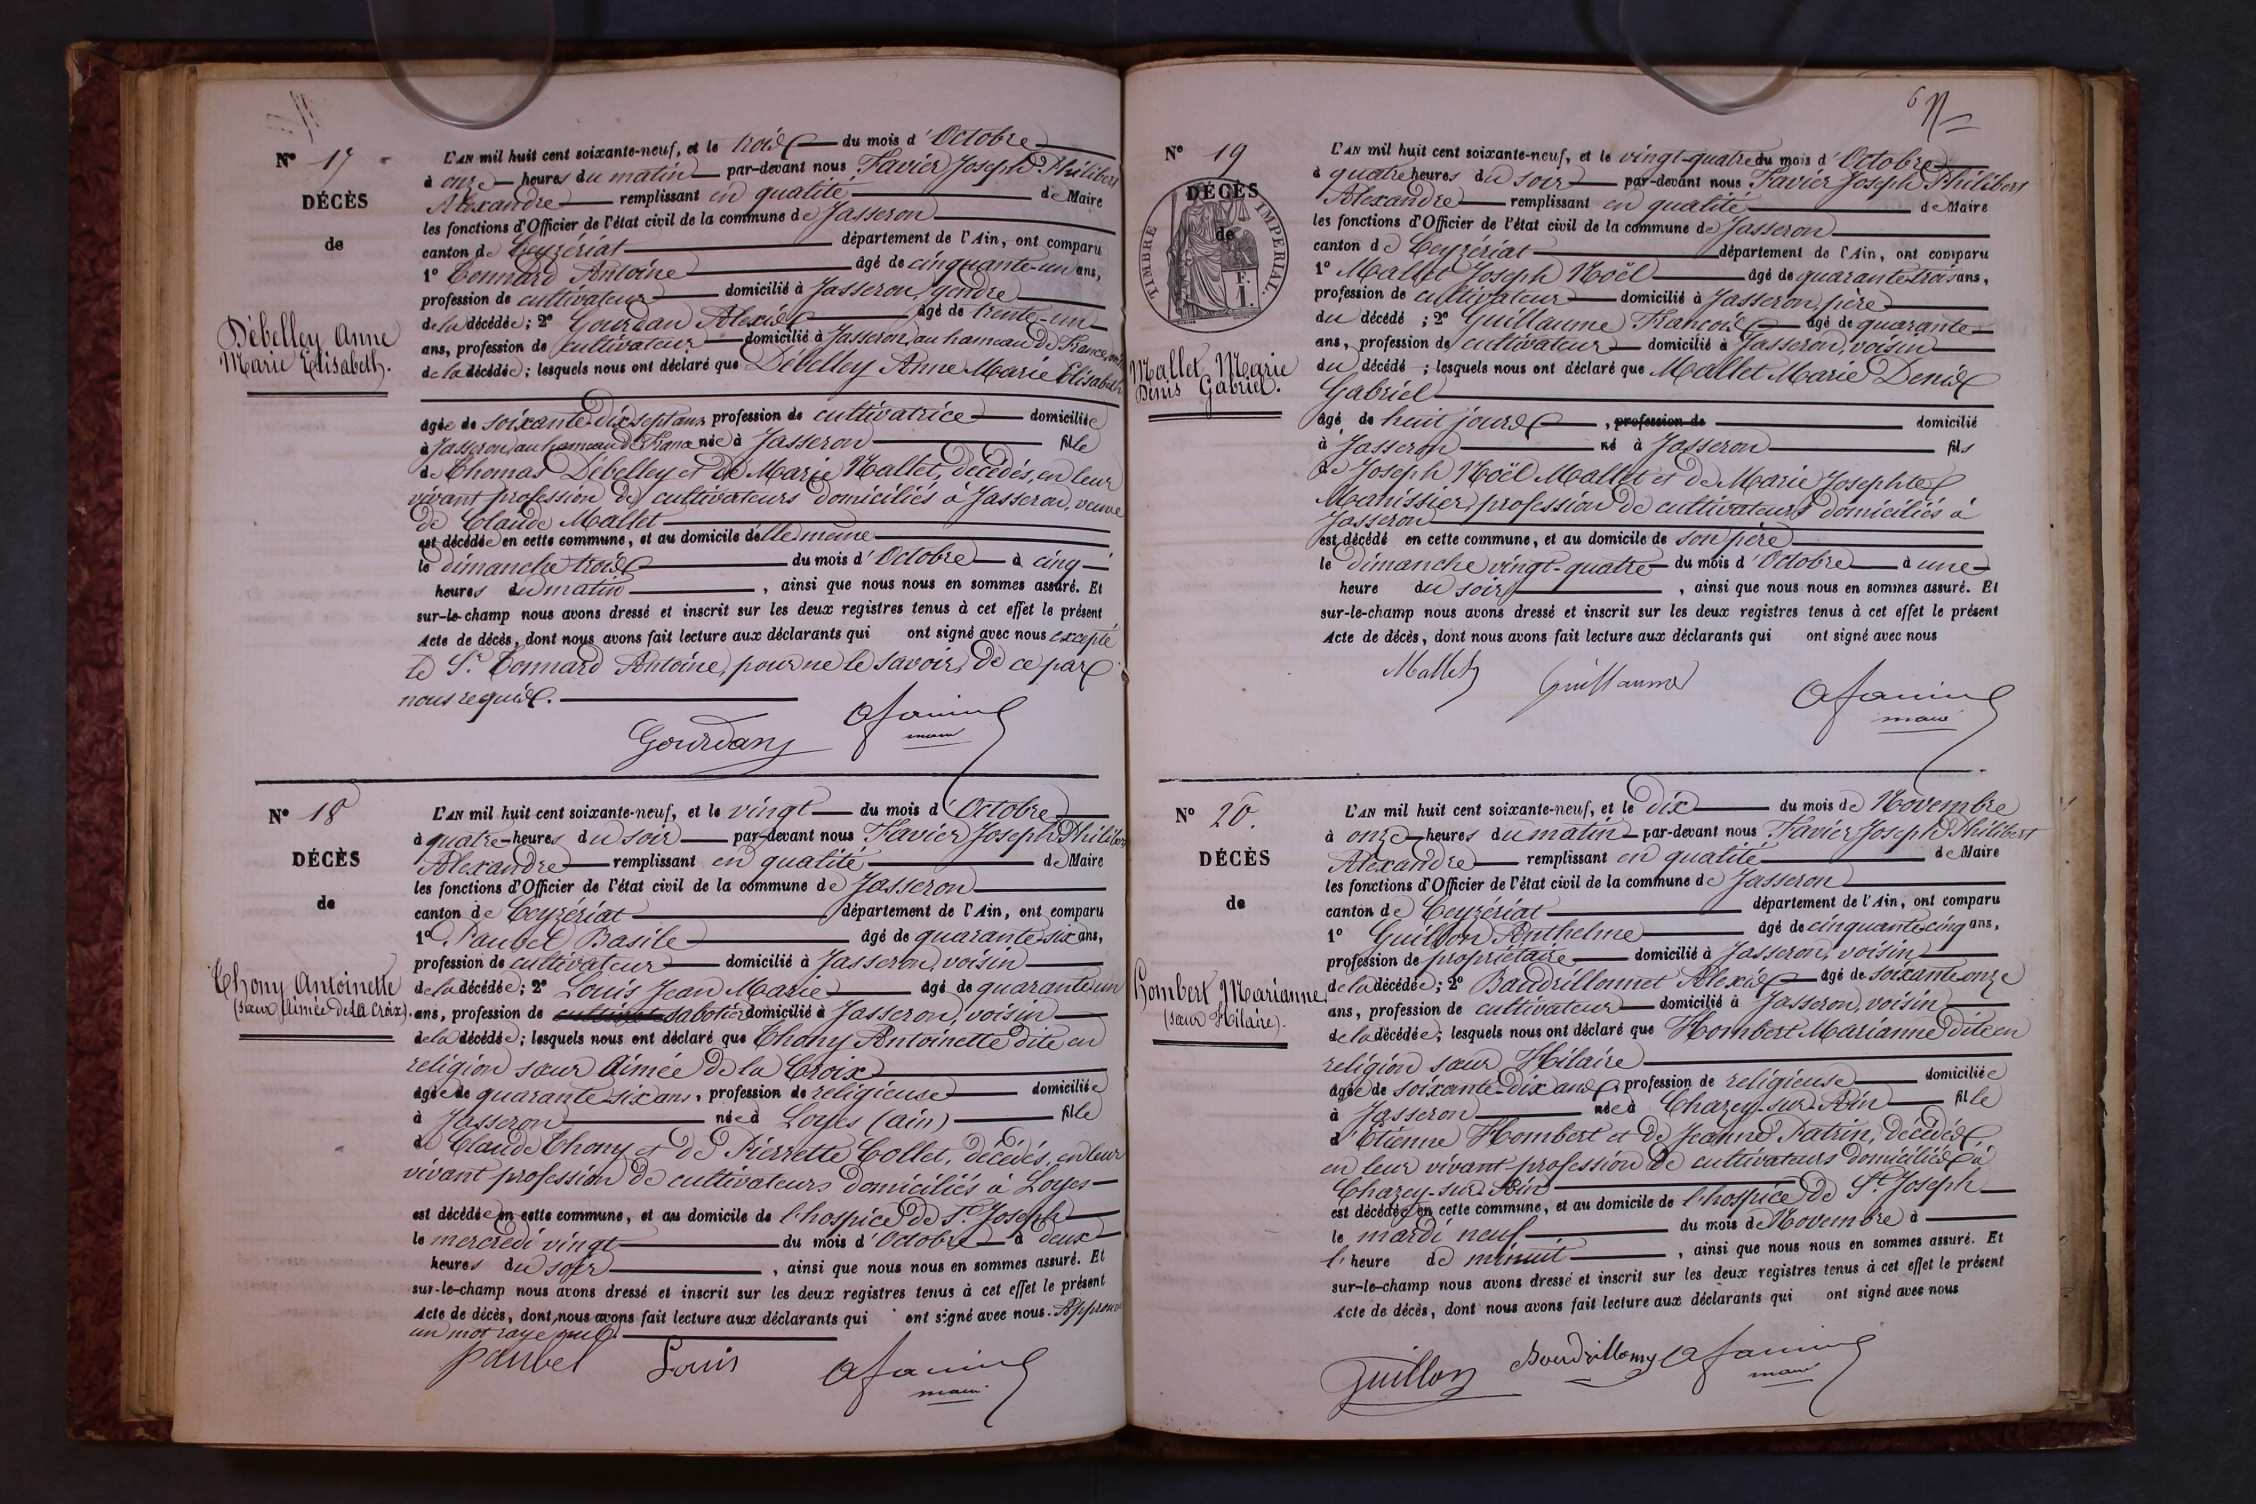 N° 17
DÉCÈS
de
Débelley Anne
Marie Elisabeth.
L'AN mil huit cent soixante-neuf, et le trois du mois d'Octobre
à onze heures du matin par-devant nous Favier Joseph Philibert
Alexandre remplissant en qualité de Maire
les fonctions d'Officier de l'état civil de la commune de Jasseron
canton de Ceyzériat département de l'Ain, ont comparu
1° Connard Antoine âgé de cinquante-un ans,
profession de cultivateur domicilié à Jasseron, gendre
de la décédée; 2° Gourdan Alexis âgé de trente-un
ans, profession de cultivateur domicilié à Jasseron, au hameau de France,
de la décédée; lesquels nous ont déclaré que Débelley Anne Marie Elisabeth
âgée de soixante-dix sept ans profession de cultivatrice domiciliée
à Jasseron, au hameau de France née à Jasseron fille
de Thomas Débelley et de Marie Mallet, décédés, en leur
vivant profession de cultivateurs domiciliés à Jasseron, veuve
de Claude Mallet
est décédée en cette commune, et au domicile d'elle même
le dimanche trois du mois d'Octobre à cinq
heures du matin, ainsi que nous nous en sommes assuré. Et
sur-le-champ nous avons dressé et inscrit sur les deux registres tenus à cet effet le présent
Acte de décès, dont nous avons fait lecture aux déclarants qui ont signé avec nous excepté
le Sr Connard Antoine, pour ne le savoir, de ce par
nous requis.
Gourdan
maire
N° 18
DÉCÈS
de
Thony Antoinette
(sœur Aimée de la Croix).
L'AN mil huit cent soixante-neuf, et le vingt du mois d'Octobre
à quatre heures du soir par-devant nous Favier Joseph Philibert
Alexandre remplissant en qualité de Maire
les fonctions d'Officier de l'état civil de la commune de Jasseron
canton de Ceyzériat département de l'Ain, ont comparu
1° Pauvel Basile âgé de quarante-six ans,
profession de cultivateur domicilié à Jasseron, voisin
de la décédée; 2° Louis Jean Marie âgé de quarante un
ans, profession de sabotier domicilié à Jasseron, voisin
de la décédée; lesquels nous ont déclaré que Thony Antoinette dite en
religion sœur Aimée de la Croix
âgée de quarante-six ans, profession de religieuse domiciliée
à Jasseron née à Loyes (ain) fille
de Claude Thony et de Pierrette Collet, décédés, en leur
vivant profession de cultivateurs domiciliés à Loyes
est décédée en cette commune, et au domicile de l'hospice de St Joseph
le mercredi vingt du mois d'Octobre à deux
heures du soir, ainsi que nous nous en sommes assuré. Et
sur-le-champ nous avons dressé et inscrit sur les deux registres tenus à cet effet le présent
Acte de décès, dont nous avons fait lecture aux déclarants qui ont signé avec nous. Approuvé
un mot rayé nul.
Pauvel Louis
maire
N° 19
DÉCÈS
de
TIMBRE IMPÉRIAL.
F. 1.
Mallet Marie
Denis Gabriel.
L'AN mil huit cent soixante-neuf, et le vingt-quatre du mois d'Octobre
à quatre heures du soir par-devant nous Favier Joseph Philibert
Alexandre remplissant en qualité de Maire
les fonctions d'Officier de l'état civil de la commune de Jasseron
canton de Ceyzériat département de l'Ain, ont comparu
1° Mallet Joseph Noël âgé de quarante-trois ans,
profession de cultivateur domicilié à Jasseron, père
du décédé; 2° Guillaume François âgé de quarante
ans, profession de cultivateur domicilié à Jasseron, voisin
du décédé; lesquels nous ont déclaré que Mallet Marie Denis
Gabriel
âgé de huit jours, profession de domicilié
à Jasseron né à Jasseron fils
de Joseph Noël Mallet et de Marie Josephte
Manissier, profession de cultivateurs domiciliés à
Jasseron
est décédé en cette commune, et au domicile de son père
le dimanche vingt-quatre du mois d'Octobre à une
heure du soir, ainsi que nous nous en sommes assuré. Et
sur-le-champ nous avons dressé et inscrit sur les deux registres tenus à cet effet le présent
Acte de décès, dont nous avons fait lecture aux déclarants qui ont signé avec nous
Mallet Guillaume
maire
N° 20.
DÉCÈS
de
Hombert Marianne
(sœur Hilaire).
L'AN mil huit cent soixante-neuf, et le dix du mois de Novembre
à onze heures du matin par-devant nous Favier Joseph Philibert
Alexandre remplissant en qualité de Maire
les fonctions d'Officier de l'état civil de la commune de Jasseron
canton de Ceyzériat département de l'Ain, ont comparu
1° Guillon Anthelme âgé de cinquante-cinq ans,
profession de propriétaire domicilié à Jasseron, voisin
de la décédée; 2° Baudrillonnet Alexis âgé de soixante onze
ans, profession de cultivateur domicilié à Jasseron, voisin
de la décédée; lesquels nous ont déclaré que Hombert Marianne dite en
religion sœur Hilaire
âgée de soixante-dix ans, profession de religieuse domiciliée
à Jasseron née à Chazey-sur-Ain fille
d'Étienne Hombert et de Jeanne Patrin, décédés,
en leur vivant profession de cultivateurs domiciliés à
Chazey-sur-Ain
est décédée en cette commune, et au domicile de l'hospice de St Joseph
le mardi neuf du mois de Novembre à
l'heure de minuit, ainsi que nous nous en sommes assuré. Et
sur-le-champ nous avons dressé et inscrit sur les deux registres tenus à cet effet le présent
Acte de décès, dont nous avons fait lecture aux déclarants qui ont signé avec nous
Guillon
maire